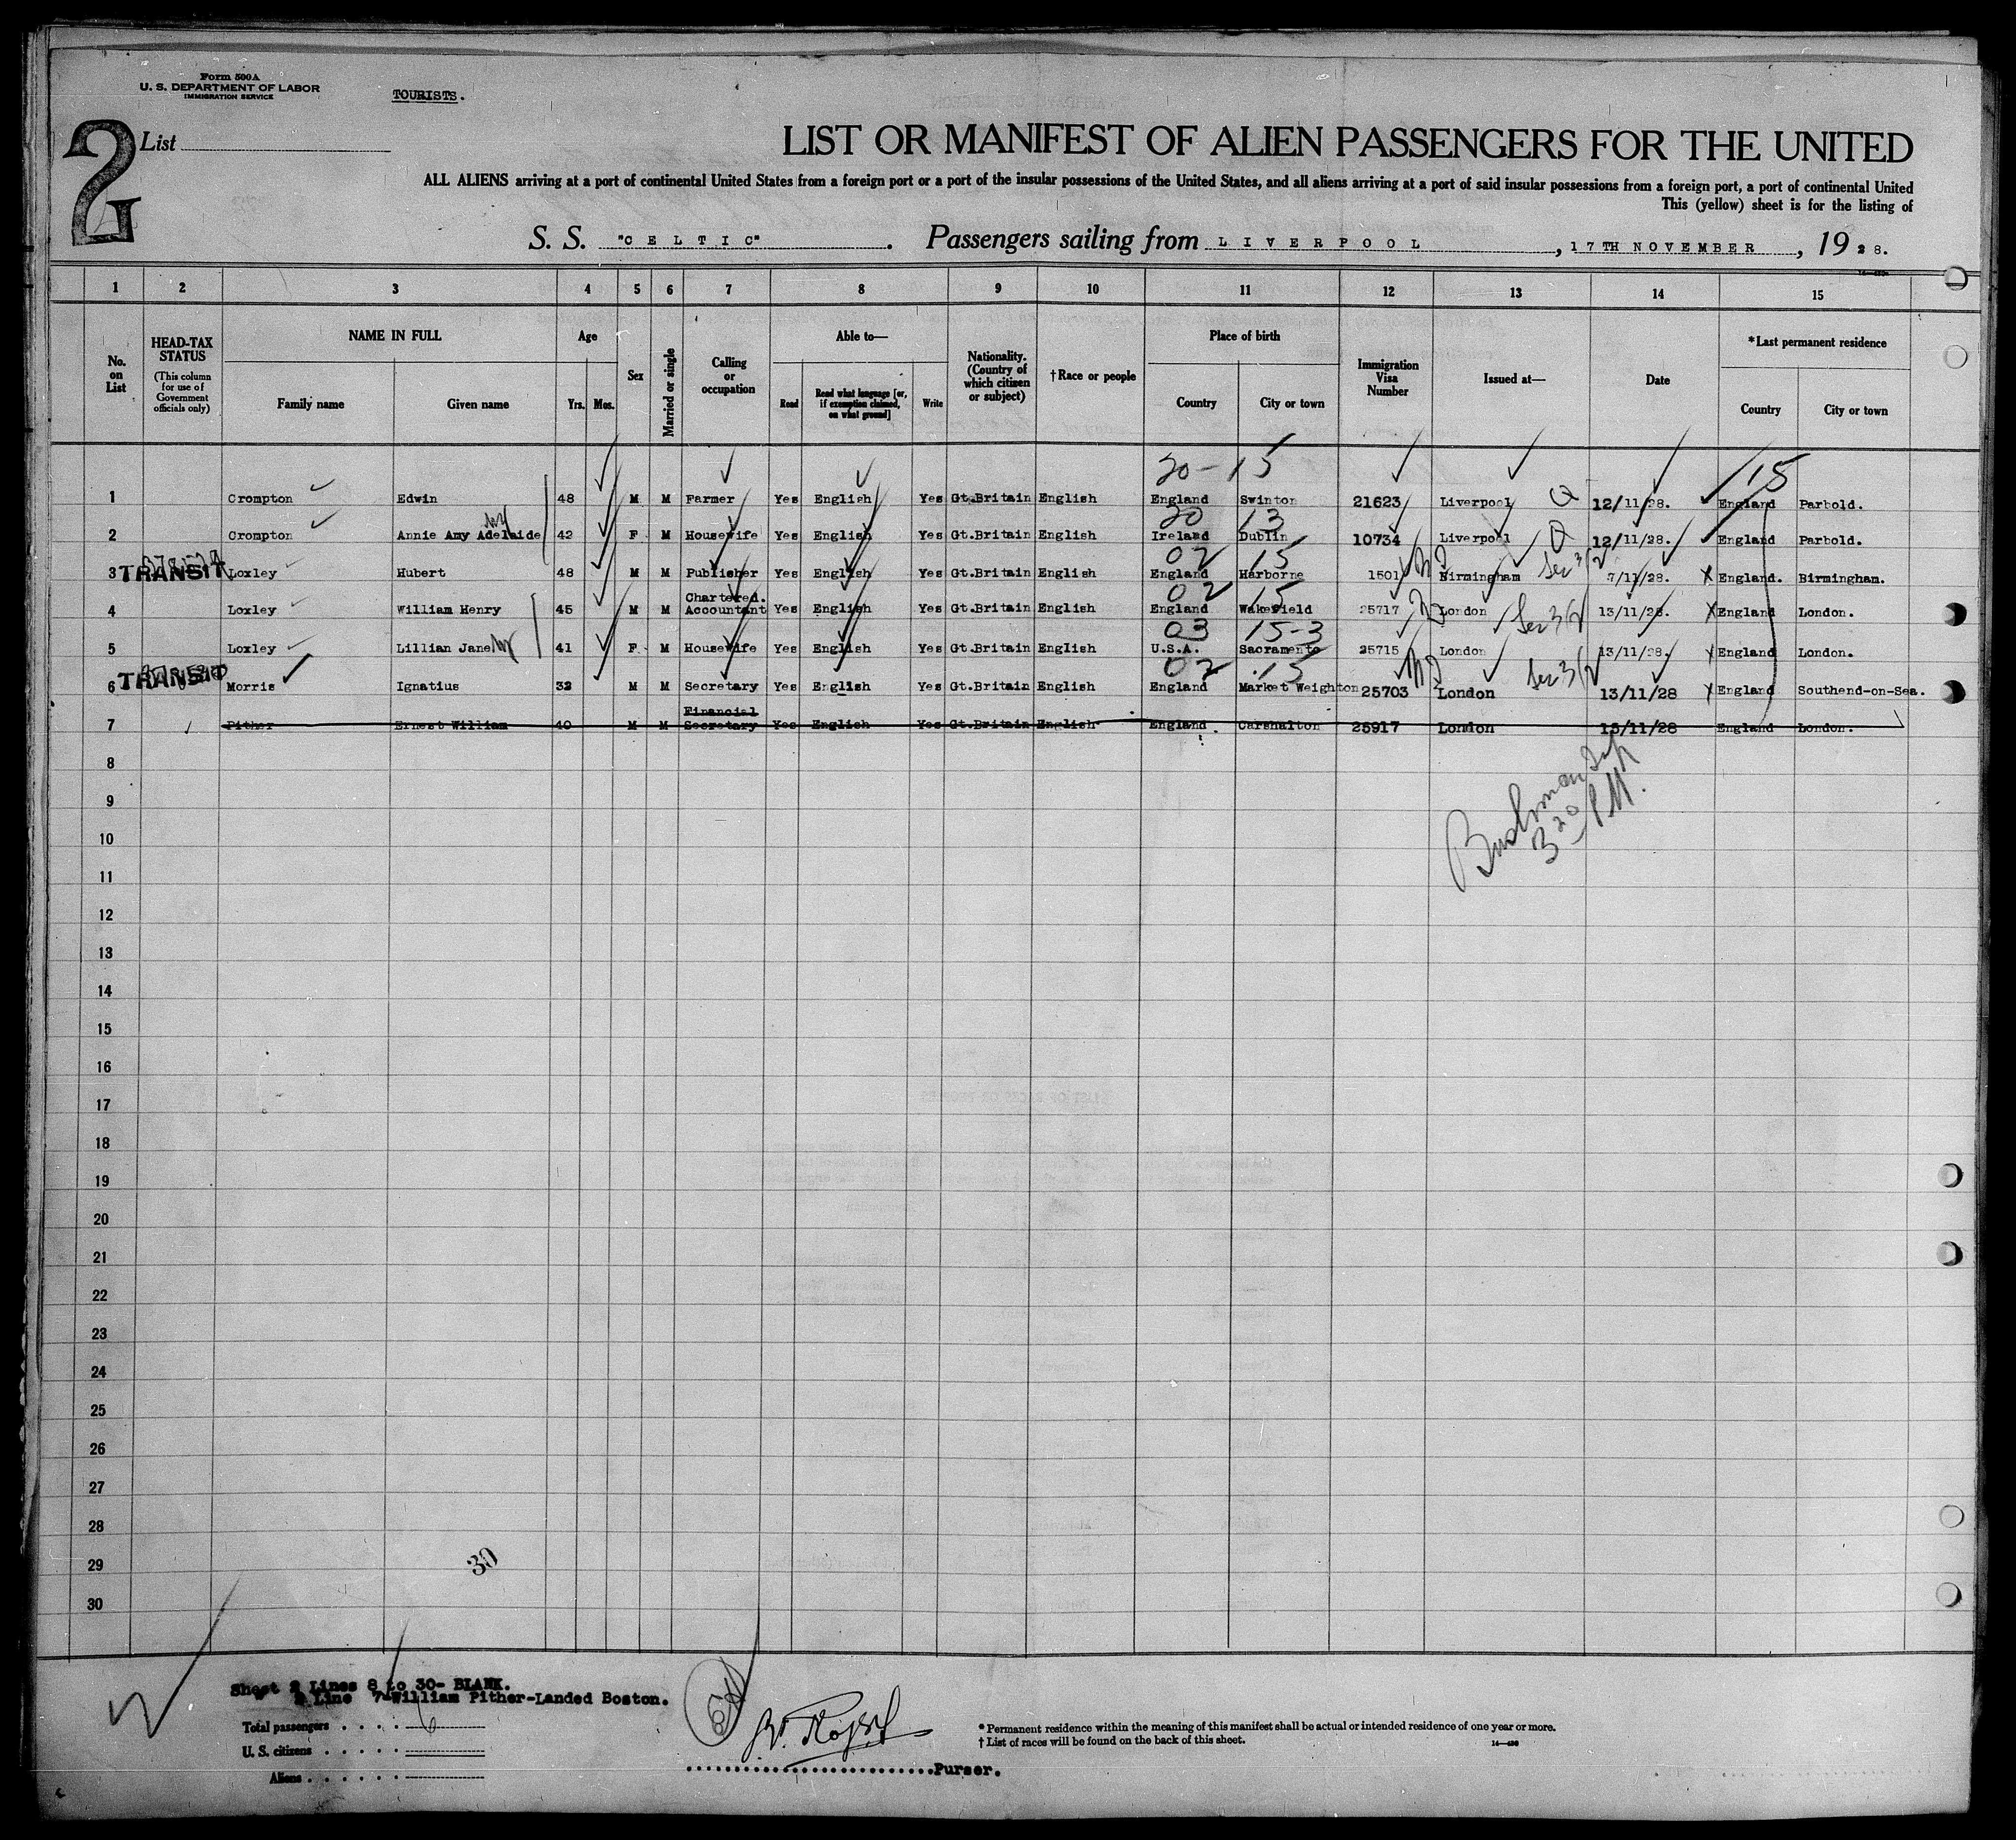 Form 500A
U. S. DEPARTMENT OF LABOR
IMMIGRATION SERVICE
TOURISTS.
2
List
LIST OR MANIFEST OF ALIEN PASSENGERS FOR THE UNITED
ALL ALIENS arriving at a port of continental United States from a foreign port or a port of the insular possessions of the United States, and all aliens arriving at a port of said insular possessions from a foreign port, a port of continental United
This (yellow) sheet is for the listing of
S. S. "CELTIC". Passengers sailing from LIVERPOOL, 17TH NOVEMBER, 1928.
1 2 3 4 5 6 7 8 9 10 11 12 13 14 15
No. on List
HEAD-TAX STATUS (This column for use of Government officials only)
NAME IN FULL
Family name Given name
Age
Yrs. Mos.
Sex
Married or single
Calling or occupation
Able to—
Read Read what language [or, if exemption claimed, on what ground] Write
Nationality. (Country of which citizen or subject)
†Race or people
Place of birth
Country City or town
Immigration Visa Number
Issued at—
Date
*Last permanent residence
Country City or town
20-15 15
1 Crompton Edwin 48 M M Farmer Yes English Yes Gt.Britain English England Swinton 21623 Liverpool Q 12/11/28. England Parbold.
20 13
2 Crompton Annie Amy Adelaide 42 F M Housewife Yes English Yes Gt.Britain English Ireland Dublin 10734 Liverpool Q 12/11/28. England Parbold.
02 15
3 TRANSIT Loxley Hubert 48 M M Publisher Yes English Yes Gt.Britain English England Harborne 1501 Birmingham Sec 3(2 7/11/28. X England. Birmingham.
02 15
4 Loxley William Henry 45 M M Chartered. Accountant Yes English Yes Gt.Britain English England Wakefield 25717 London Sec 3(2 13/11/28. X England London.
03 15-3
5 Loxley Lillian Jane 41 F M Housewife Yes English Yes Gt.Britain English U.S.A. Sacramento 25715 London 13/11/28. X England London.
02 15
6 TRANSIT Morris Ignatius 32 M M Secretary Yes English Yes Gt.Britain English England Market Weighton 25703 London Sec 3(2 13/11/28 X England Southend-on-Sea.
7 Pither Ernest William 40 M M Financial Secretary Yes English Yes Gt.Britain English England Carshalton 25917 London 15/11/28 England London.
8
9
3 20 PM.
10
11
12
13
14
15
16
17
18
19
20
21
22
23
24
25
26
27
28
29
30
30
Sheet 2 Lines 8 to 30- BLANK.
2 Line 7-William Pither-Landed Boston.
Total passengers 6
U. S. citizens
Aliens
Purser.
* Permanent residence within the meaning of this manifest shall be actual or intended residence of one year or more.
† List of races will be found on the back of this sheet.